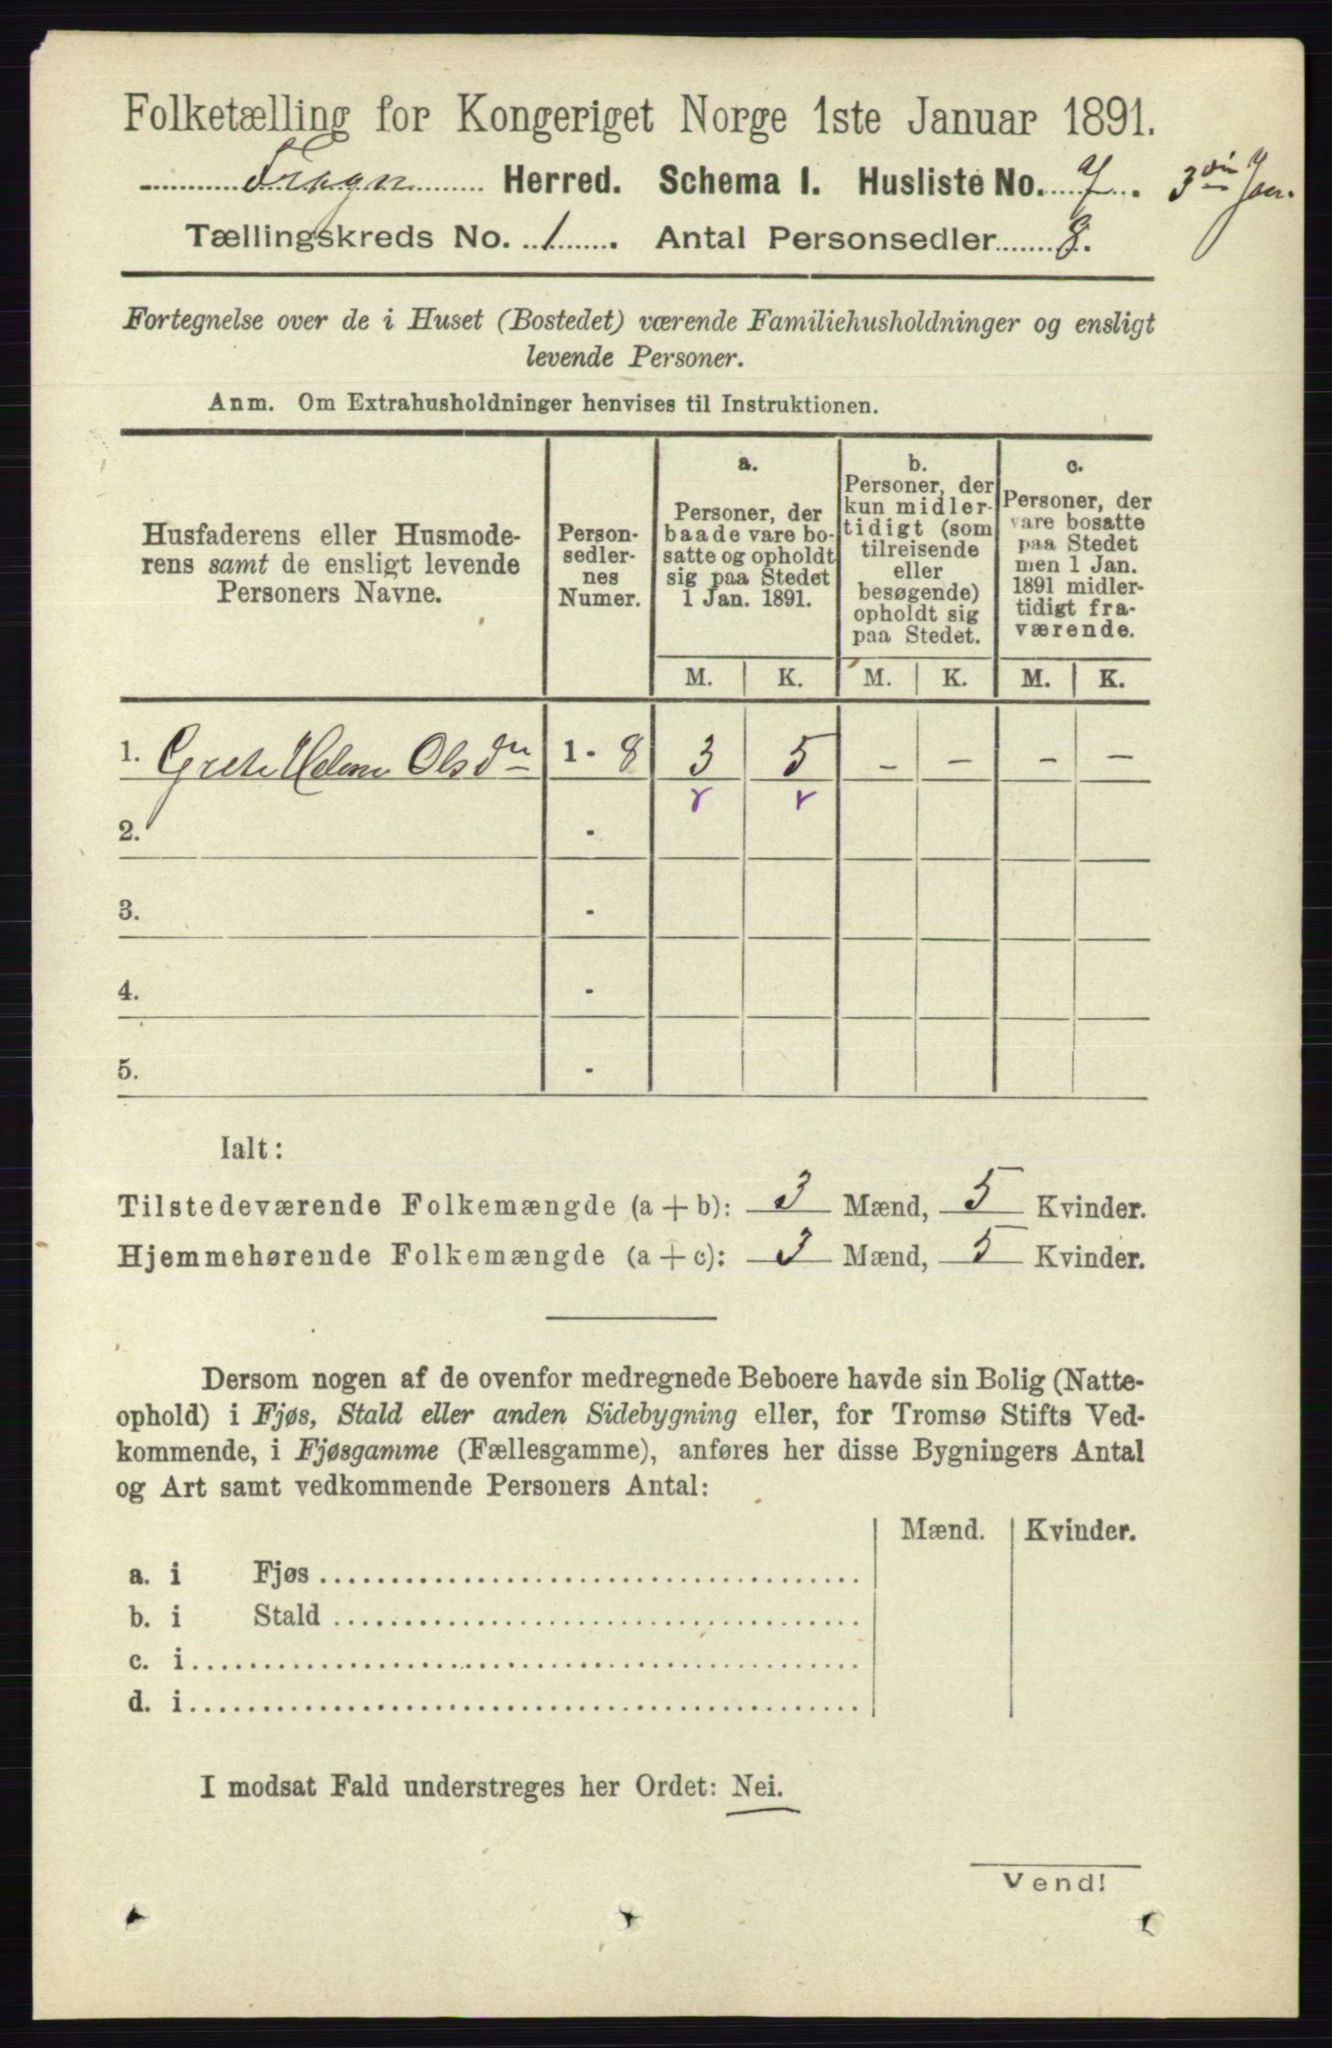 Folketælling for Kongeriget Norge 1ste Januar 1891.
Frogn Herred. Schema I. Husliste No. 7. 3die Jan.
Tællingskreds No. 1. Antal Personsedler 8.
Fortegnelse over de i Huset (Bostedet) værende Familiehusholdninger og ensligt
levende Personer.
Anm. Om Extrahusholdninger henvises til Instruktionen.
Husfaderens eller Husmode-
rens samt de ensligt levende
Personers Navne.
Person-
sedler-
nes
Numer.
a.
Personer, der
baade vare bo-
satte og opholdt
sig paa Stedet
1 Jan. 1891.
b.
Personer, der
kun midler-
tidigt (som
tilreisende
eller
besøgende)
opholdt sig
paa Stedet.
c.
Personer, der
vare bosatte
paa Stedet
men 1 Jan.
1891 midler-
tidigt fra-
værende.
M. K. M. K. M. K.
1. Grete Helene Olsdn 1 - 8 3 5 - - - -
2. -
3. -
4. -
5. -
Ialt:
Tilstedeværende Folkemængde (a + b): 3 Mænd, 5 Kvinder.
Hjemmehørende Folkemængde (a + c): 3 Mænd, 5 Kvinder.
Dersom nogen af de ovenfor medregnede Beboere havde sin Bolig (Natte-
ophold) i Fjøs, Stald eller anden Sidebygning eller, for Tromsø Stifts Ved-
kommende, i Fjøsgamme (Fællesgamme), anføres her disse Bygningers Antal
og Art samt vedkommende Personers Antal:
Mænd. Kvinder.
a. i Fjøs
b. i Stald
c. i
d. i
I modsat Fald understreges her Ordet: Nei.
Vend!